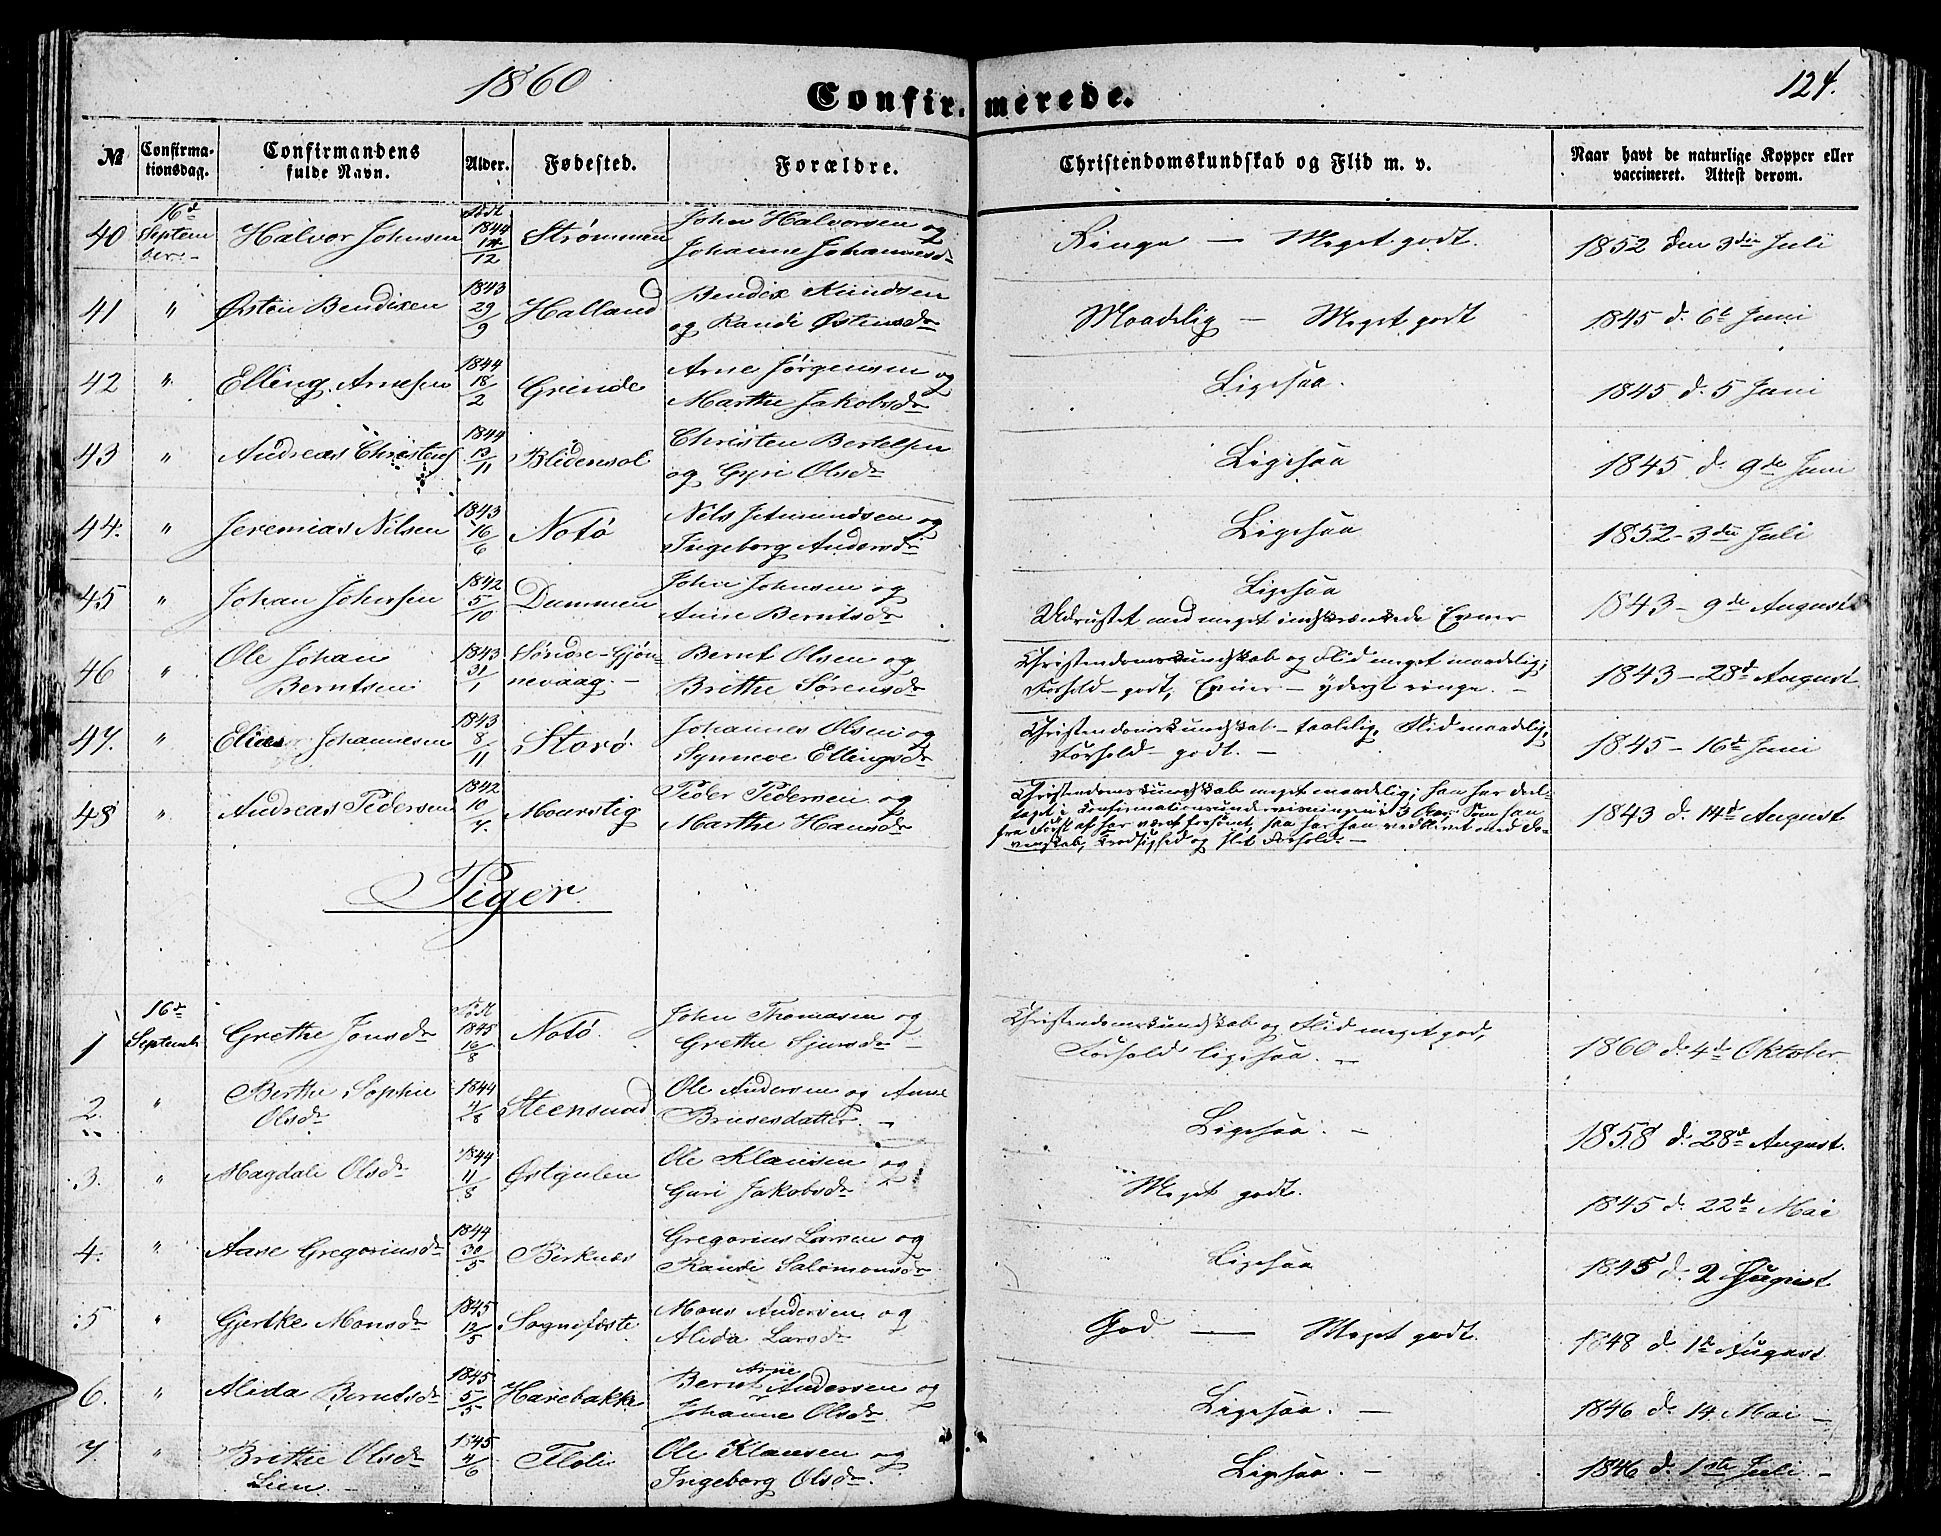 1860
Confirmerede.
124.
№
Confirma-
tionsdag.
Confirmandens
fulde Navn.
Alder.
Fødested.
Forældre.
Christendomskundskab og Flid m. v.
Naar havt de naturlige Kopper eller
vaccineret. Attest derom.
40 16d Septem ber.- Halvor Johnsen Född 1844 14/12 Strømmen John Halvorsen og
Johanne Johannesdr
Ringe — Meget godt.
1852 den 3die Juli
41 " Østen Bendixen 1843 29/9 Halland Bendix Knudsen
og Randi Østensdr
Maadelig — Meget godt
1845 d. 6te Juni
42 " Elling Arnesen 1844 18/2 Grinde Arne Jørgensen og
Marthe Jakobsdr
Ligesaa.
1845 d. 5 Juni
43 " Andreas Christens 1844 13/11 Blidensol Christen Bertelsen
og Gyri Olsdr
Ligesaa
1845 d. 9de Juni
44. " Jeremias Nilsen 1843 16/6 Notø Nils
og
Ingeborg Andersdr
Ligesaa
1852 - 3die Juli
45 " Johan Johnsen 1842 5/10 Dammen John Johnsen og
Anne Berntsdr
Ligesaa
Udrustet med meget indskrænkede Evner
1843 - 9de August
46 " Ole Johan
Berntsen 1843 31/1 Søndre-Gjøn-
nevaag.- Bernt Olsen og
Brithe Sørensdr
Christendomskundskab og Flid meget maadelig;
Forhold - godt; Evner - yderst ringe. -
1843 - 28d August
47. " Elias Johannesen 1843 8/11 Storø. Johannes Olsen og
Synneve Ellingsdr
Christendomskundskab - taalelig, Flid maadelig,
Forhold - godt. -
1845 - 16d Juni
48 " Andreas Pedersen 1842 10/4. Mourstig Peder Pedersen og
Marthe Hansdr
Christendomskundskab meget maadelig; han har deel-
taget i Confirmationsundervisningen i 3 Aar. Som han
fra Først af har været forsømt, saa har han vedblevet med Do-
venskab, Trodsighed og slet Forhold. -
1843 d. 14d August
Piger.
1 16d Septemb. Grethe Jonsdr Född 1845 16/8 Notø John Thomasen og
Grethe Sjursdr -
Christendomskundskab og Flid meget god,
Forhold ligesaa. -
1860 d. 4d Oktober
2. " Berthe Sophie
Olsdr 1844 4/8 Steensund Ole Andersen og Anne
Brusesdatter. -
Ligesaa. -
1858 d. 28d August.
3. " Magdali Olsdr 1844 11/8 Østgulen Ole Klausen og
Guri Jakobsdr
Meget godt.
1845 d. 22d Mai
4. " Aase Gregoriusdr 1844 30/5 Birknes Gregorius Larsen og
Randi Salomonsdr
Ligesaa
1845 d. 2 August
5 " Gjertke Monsdr 1845 12/5 Sognefæste Mons Andersen og
Alida Larsdr
God — Meget godt.
1848 d. 1d August
6. " Alida Berntsdr 1845 5/5 Harebakke Arne
Bernt Andersen og
Johanne Olsdr
Ligesaa. -
1846 d. 14. Mai -
7. " Brithe Olsdr
Lien. - 1845 4/6 Flölie Ole Klausen og
Ingeborg Olsdr.
Ligesaa. -
1846 d. 1ste Juli -